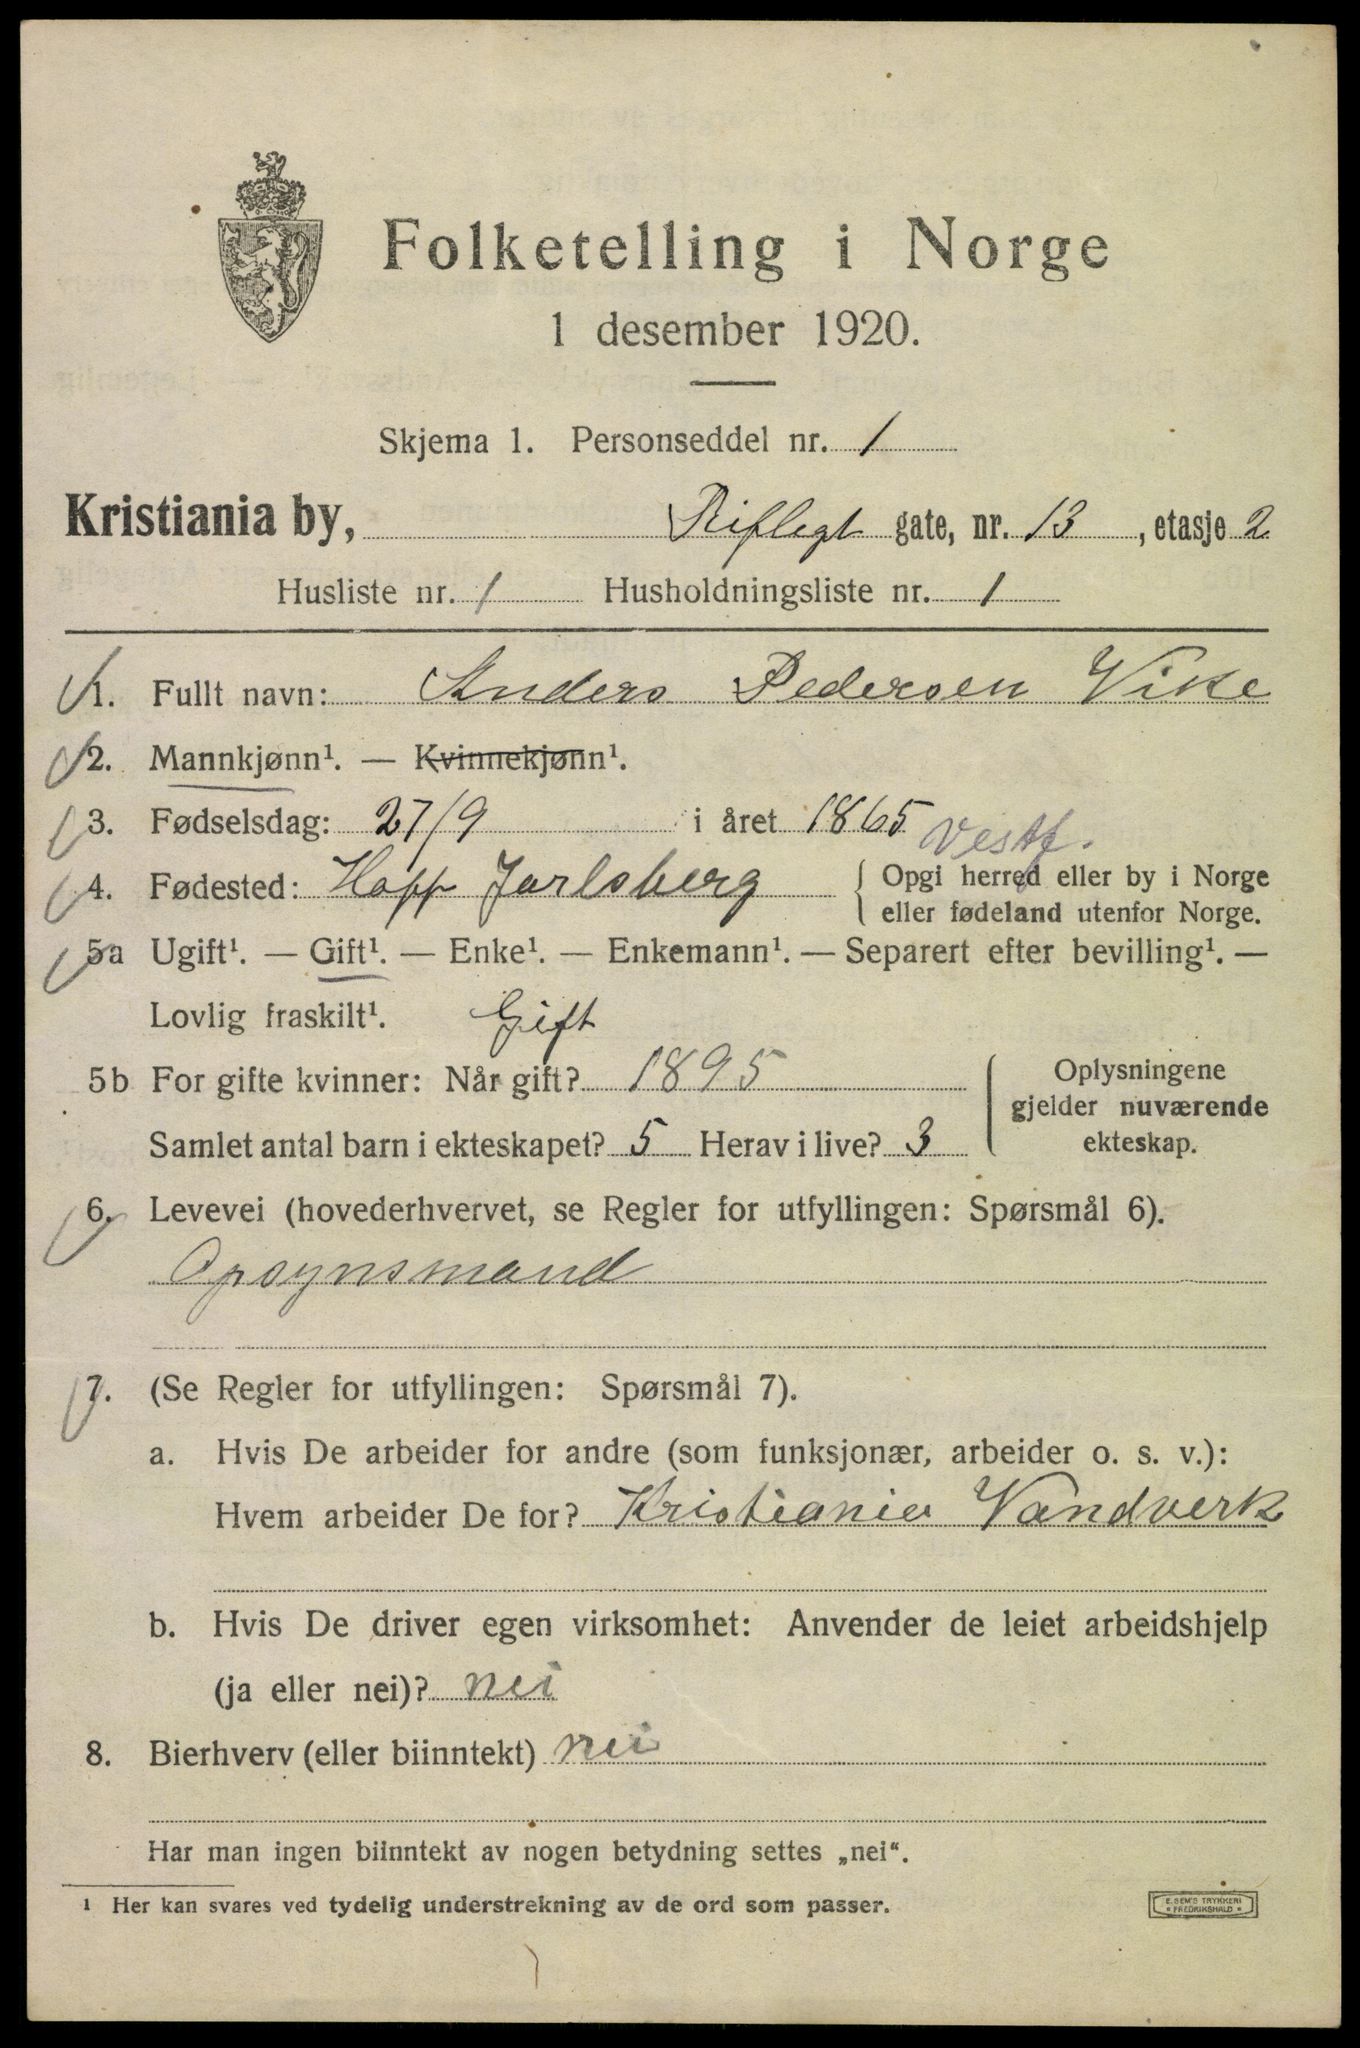 Folketelling i Norge
1 desember 1920.
Skjema 1. Personseddel nr. 1
Kristiania by, Riflegt gate, nr. 13, etasje 2
Husliste nr. 1 Husholdningsliste nr. 1
1. Fullt navn: Anders Pedersen Vike
2. Mannkjønn¹. — Kvinnekjønn¹.
3. Fødselsdag: 27/9 i året 1865
Vestf.
4. Fødested: Hoff Jarlsberg { Opgi herred eller by i Norge
eller fødeland utenfor Norge.
5a Ugift¹. — Gift¹. — Enke¹. — Enkemann¹. — Separert efter bevilling¹. —
Lovlig fraskilt¹. Gift
5b For gifte kvinner: Når gift? 1895
Samlet antal barn i ekteskapet? 5 Herav i live? 3
Oplysningene
gjelder nuværende
ekteskap.
6. Levevei (hovederhvervet, se Regler for utfyllingen: Spørsmål 6).
Opsynsmand
7. (Se Regler for utfyllingen: Spørsmål 7).
a. Hvis De arbeider for andre (som funksjonær, arbeider o. s. v.):
Hvem arbeider De for? Kristiania Vandverk
b. Hvis De driver egen virksomhet: Anvender de leiet arbeidshjelp
(ja eller nei)? nei
8. Bierhverv (eller biinntekt) nei
Har man ingen biinntekt av nogen betydning settes „nei“.
1 Her kan svares ved tydelig understrekning av de ord som passer.
E. SEM'S TRYKKERI
* FREDRIKSHALD *